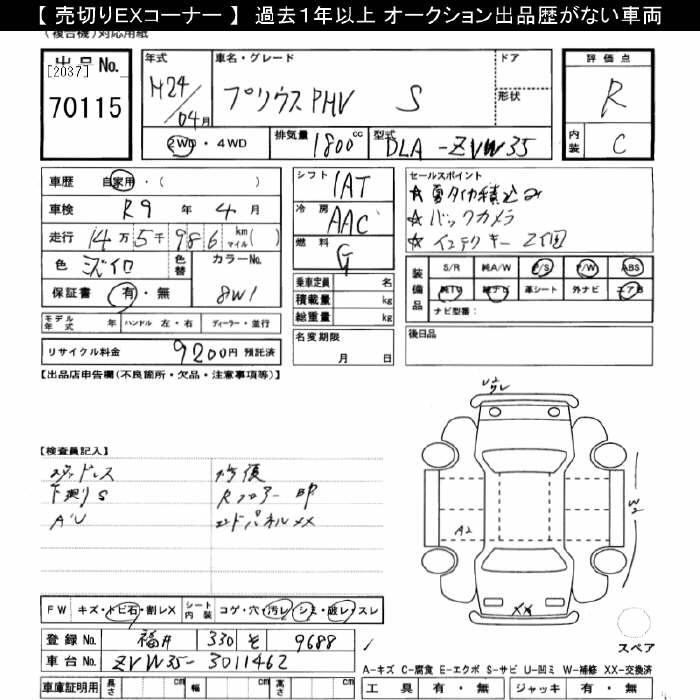 【 売切りEXコーナー 】 過去1年以上 オークション出品歴がない車両
(複合機)対応用紙
出品No.
[2037]
70115
年式
H24/04月
車名・グレード
プリウスPHV S
ドア
形状
評価点
R
内装
C
2WD・4WD
排気量
1800cc
型式
DLA-ZVW35
車歴
自家用・( )
車検
R9 年 4 月
走行
14万5千986 km マイル( )
色
シロ
色替
カラーNo.
8W1
保証書
有・無
シフト
1AT
冷房
AAC
燃料
G
乗車定員 名
積載量 kg
総重量 kg
セールスポイント
☆夏タイヤ積込み
☆バックカメラ
☆インテリキー 2個
装備品
S/R 純A/W P/S P/W ABS
純TV 純ナビ 革シート 外ナビ エアB
ナビ型番:
モデル年式 年 ハンドル 左・右 ディーラー・並行
リサイクル料金 9200円 預託済
名変期限
月 日
後日品
【出品店申告欄(不良箇所・欠品・注意事項等)】
【検査員記入】
スタッドレス
下廻りS
A'U
修復
Rフロアー
エンドパネルXX
W2
A2
XX
スペア
FW キズ・トビ石・割レX
シート内装 コゲ・穴・汚レ・シミ・破レ・スレ
登録No. 福井 330 そ 9688
車台No. ZVW35-3011462
車庫証明用 長さ cm 幅 cm 高さ cm
A-キズ C-腐食 E-エクボ S-サビ U-凹ミ W-補修 XX-交換済
工具 有・無 ジャッキ 有・無